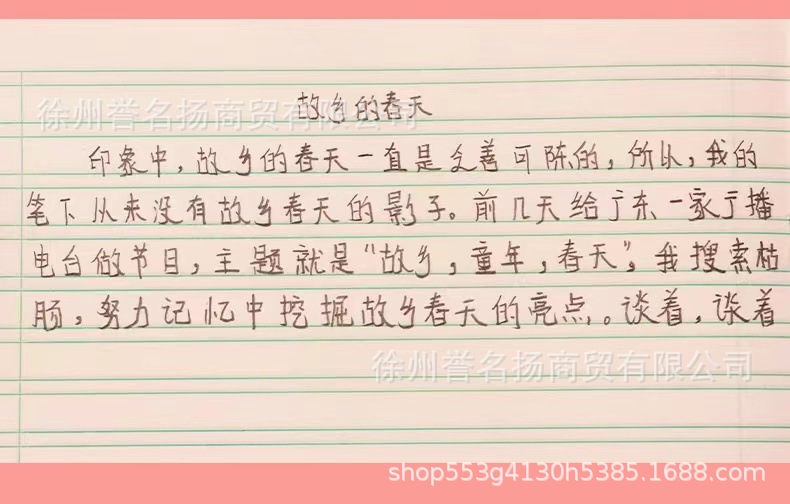 徐州誉名扬商贸有限公司
故乡的春天
印象中，故乡的春天一直是乏善可陈的，所以，我的
笔下从来没有故乡春天的影子。前几天给广东一家广播
电台做节目，主题就是“故乡，童年，春天”。我搜索枯
肠，努力记忆中挖掘故乡春天的亮点。谈着，谈着
徐州誉名扬商贸有限公司
shop553g4130h5385.1688.com